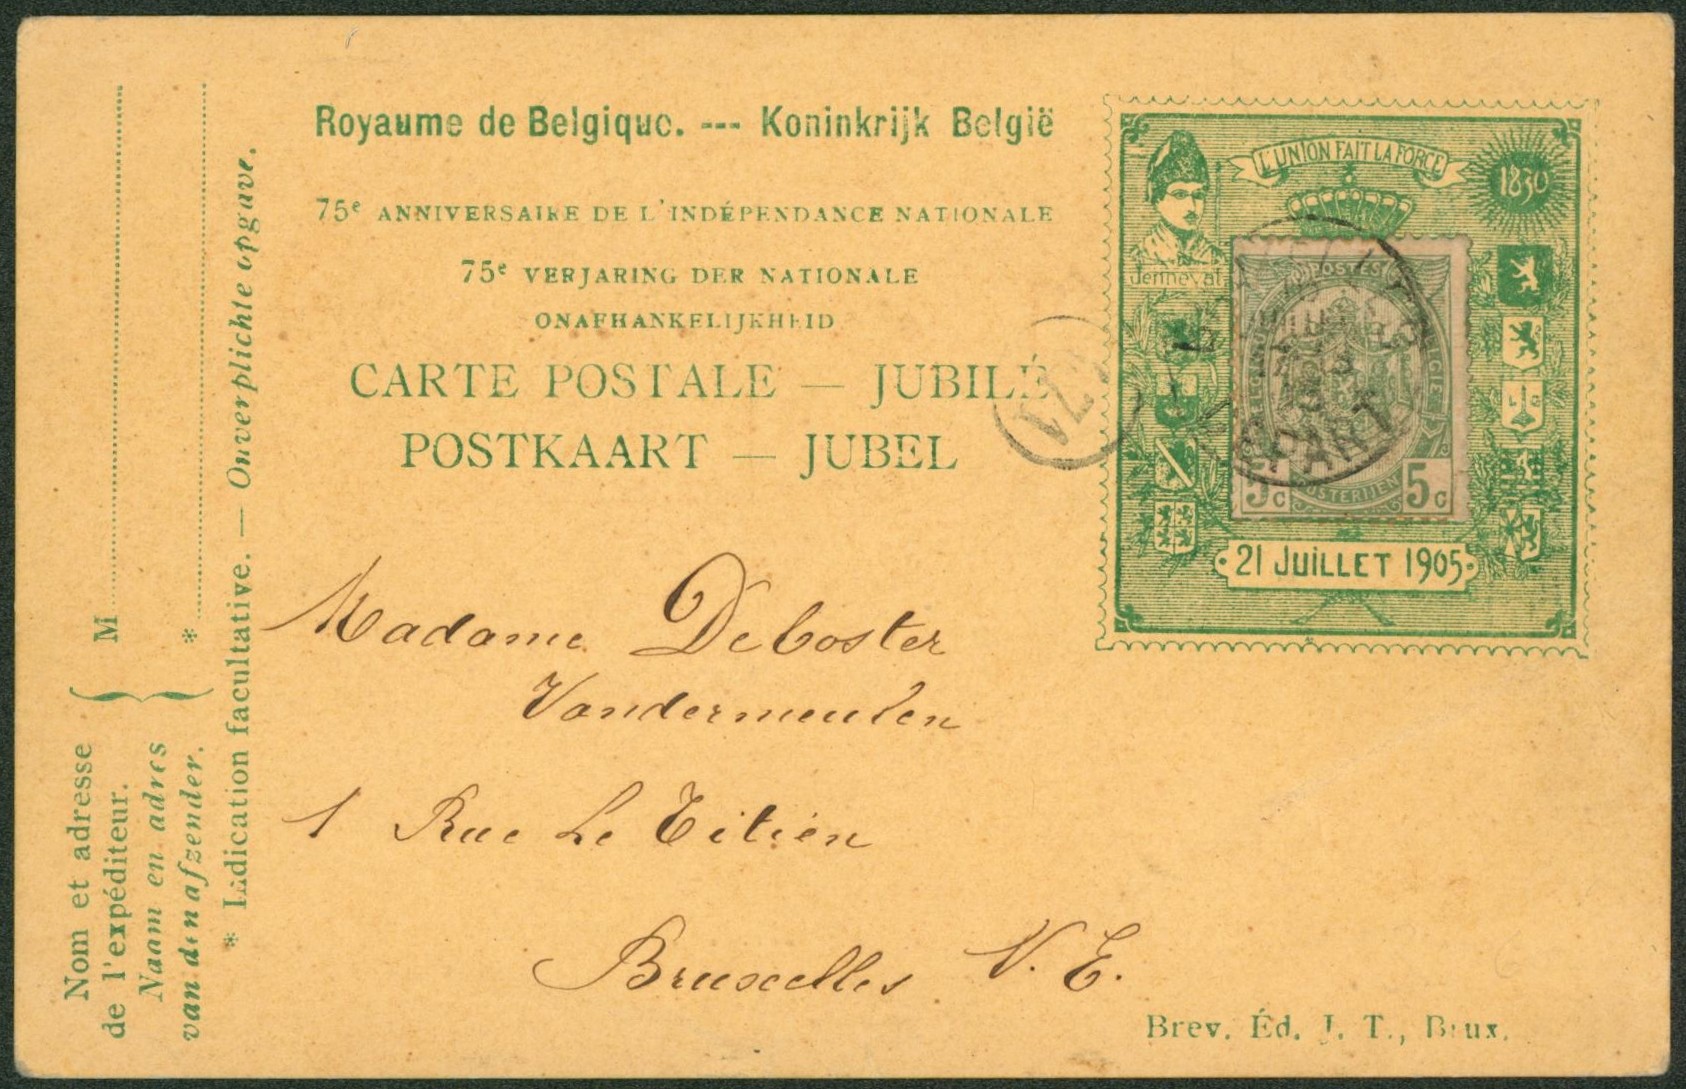 Royaume de Belgique. --- Koninkrijk België
75e ANNIVERSAIRE DE L'INDÉPENDANCE NATIONALE
75e VERJARING DER NATIONALE
ONAFHANKELIJKHEID
CARTE POSTALE — JUBILÉ
POSTKAART — JUBEL
L'UNION FAIT LA FORCE
1830
Jenneval
POSTES
5c 5c
POSTERIJEN
DEPART
21 JUILLET 1905
Madame DeCoster
Vandermeulen
1 Rue Le Titien
Bruxelles N. E.
Brev. Éd. J. T., Brux.
M
*
Nom et adresse
de l'expéditeur.
Naam en adres
van den afzender.
* Indication facultative. — Onverplichte opgave.